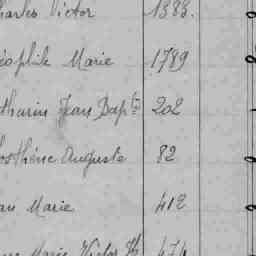 harles Victor 1388.
éophile Marie 1789
tharin Jean Bapte 202
osthène Auguste 82
an Marie 412
Marie Victor 474